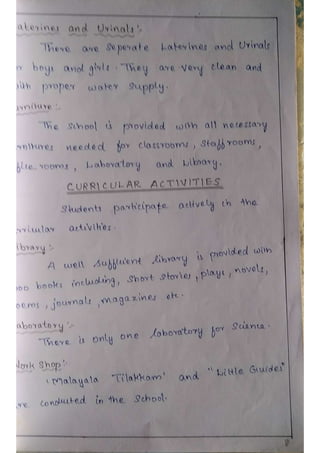 aterines and Urinals :-
There are Seperate Laterines and Urinals
r boys and girls. They are very clean and
ith proper water supply.
urniture :-
The School is provided with all necessary
rnitures needed for classrooms, Staffrooms,
fice rooms, Laboratory and Library.
CURRICULAR ACTIVITIES
Students participate actively in the
rricular activities.
ibrary :-
A well suffluent library is provided with
000 books including, Short stories, plays, novels,
oems, journals, magazines etc.
aboratory :-
There is only one laboratory for Science.
Work Shop :-
'Malayala Tilakkam' and "Little Guides"
re conducted in the School.
8